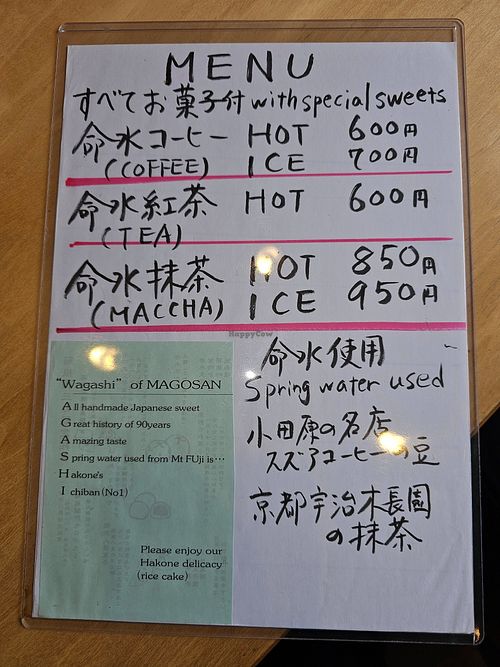 MENU
すべてお菓子付 with special sweets
命水コーヒー HOT 600円
(COFFEE) ICE 700円
命水紅茶 HOT 600円
(TEA)
命水抹茶 HOT 850円
(MACCHA) ICE 950円
HappyCow
"Wagashi" of MAGOSAN
All handmade Japanese sweet
Great history of 90years
Amazing taste
Spring water used from Mt FUji is…
Hakone's
Ichiban (No1)
Please enjoy our
Hakone delicacy
(rice cake)
命水使用
Spring water used
小田原の名店
スズアコーヒーの豆
京都宇治木長園
の抹茶